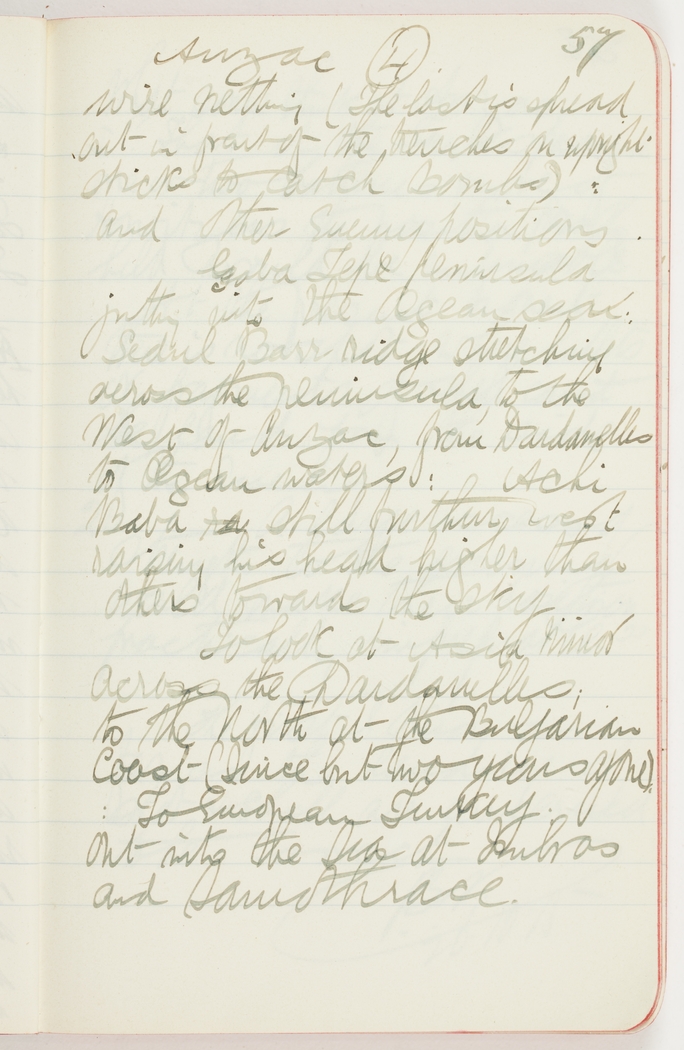 Anzac (4) 57
wire netting (The last is spread
out in front of the trenches on upright
sticks to catch bombs) :
and other Enemy positions .
Gaba Tepe peninsula
jutting into the Ogean sea :
Sedril Barr ridge stretching
across the peninsula, to the
West of Anzac, from Dardanelles
to Ogean waters : Achi
Baba still further west
raising his head higher than
others towards the sky
To look at Asia Minor
across the Dardanelles,
to the North at the Bulgarian
Coast (Since but two years gone).
: To European Turkey .
out into the Sea at Imbros
and Samothrace.